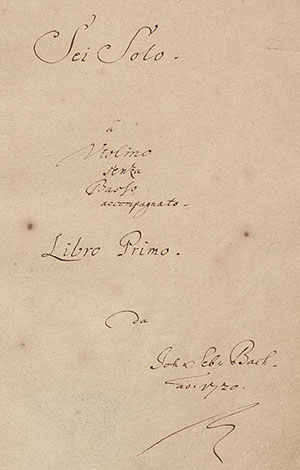 Sei Solo.
â
Violino
senza
Basso
accompagnato.
Libro Primo.
da
Joh. Seb. Bach.
aõ. 1720.